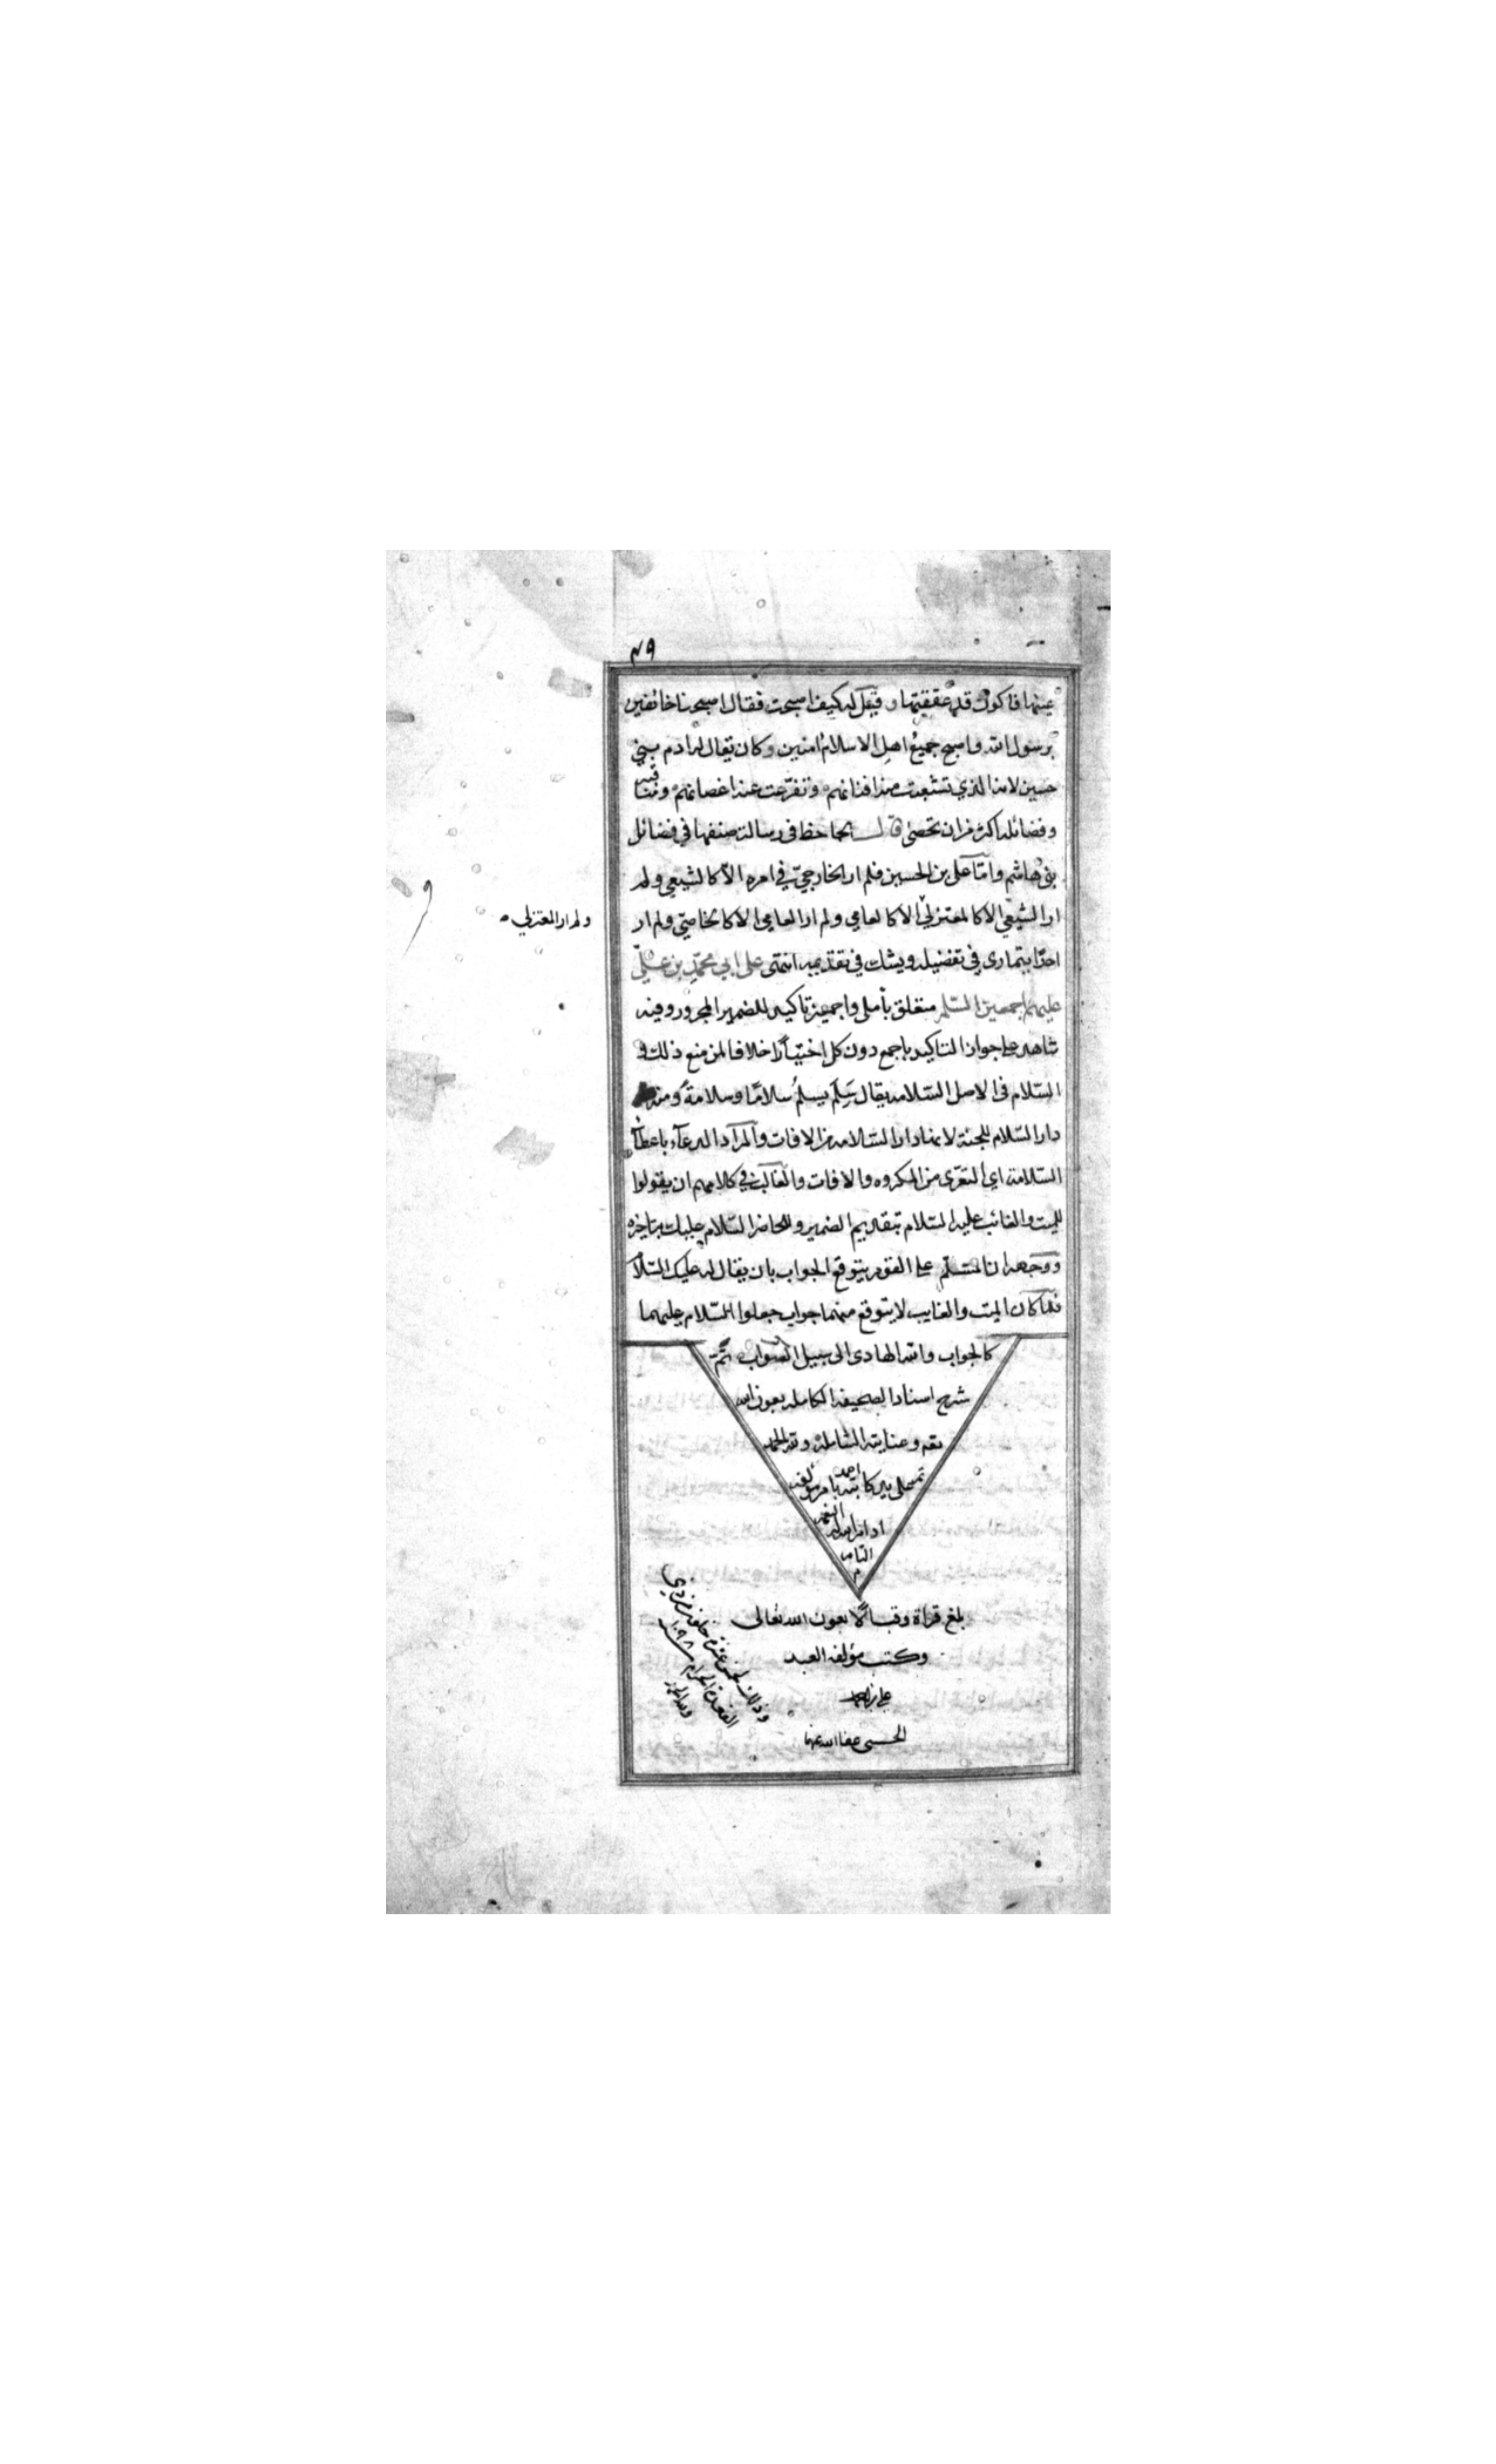 ٤٩
عينها فاكون قد عققتها وقيل له كيف اصبحت فقال اصبحنا خائفين
برسول الله واصبح جميع اهل الاسلام امنين وكان يقال له ادم بني
حسين لانه الذي تشعبت منه افنانهم وتفرعت عنه اغصانهم ومناقبه
وفضائله اكثر من ان تحصى قال الجاحظ في رسالة صنفها في فضائل
بني هاشم واما علي بن الحسين فلم ار الخارجي في امره الا كالشيعي ولم
ار الشيعي الا كالمعتزلي الا كالعامي ولم ار العامي الا كالخاصي ولم ار
ولم ار المعتزلي
احدا يتمارى في تفضيله ويشك في تقديمه انتهى على ابي محمد بن علي
عليهم اجمعين السلم متعلق بأملى واجمعين تاكيد للضمير المجرور وفيه
شاهد على جواز التاكيد باجمع دون كل اختيارا خلافا لمن منع ذلك و
السلام في الاصل السلامه يقال سَلِم يسلم سلامًا وسلامةً ومنه
دار السلام للجنة لانها دار السلامه من الافات والمراد الدعاء باعطاء
السلامة اي التعرى من المكروه والافات والغالب في كلامهم ان يقولوا
للميت والغائب عليه السلام بتقديم الضمير وللحاضر السلام عليك بتاخيره
ووجهه ان المسلم على القوم يتوقع الجواب بان يقال له عليك السلام
فلما كان الميت والغايب لا يتوقع منهما جواب جعلوا السلام عليهما
كالجواب والله الهادى الى سبيل الصواب تم
شرح اسناد الصحيفه الكامله بعون الله
تعم وعنايته الشاملة ولله الحمد
تم على يد كاتبه بامر مؤلفه
ادام الله له النعم
التام
م
بلغ قراة وقبالا بعون الله تعالى
وكتب مؤلفه العبد
علي بن احمد
الحسنى عفا الله عنهما
وذلك لخمس عشرة خلت من ذي
القعدة الحرام
ولله الحمد